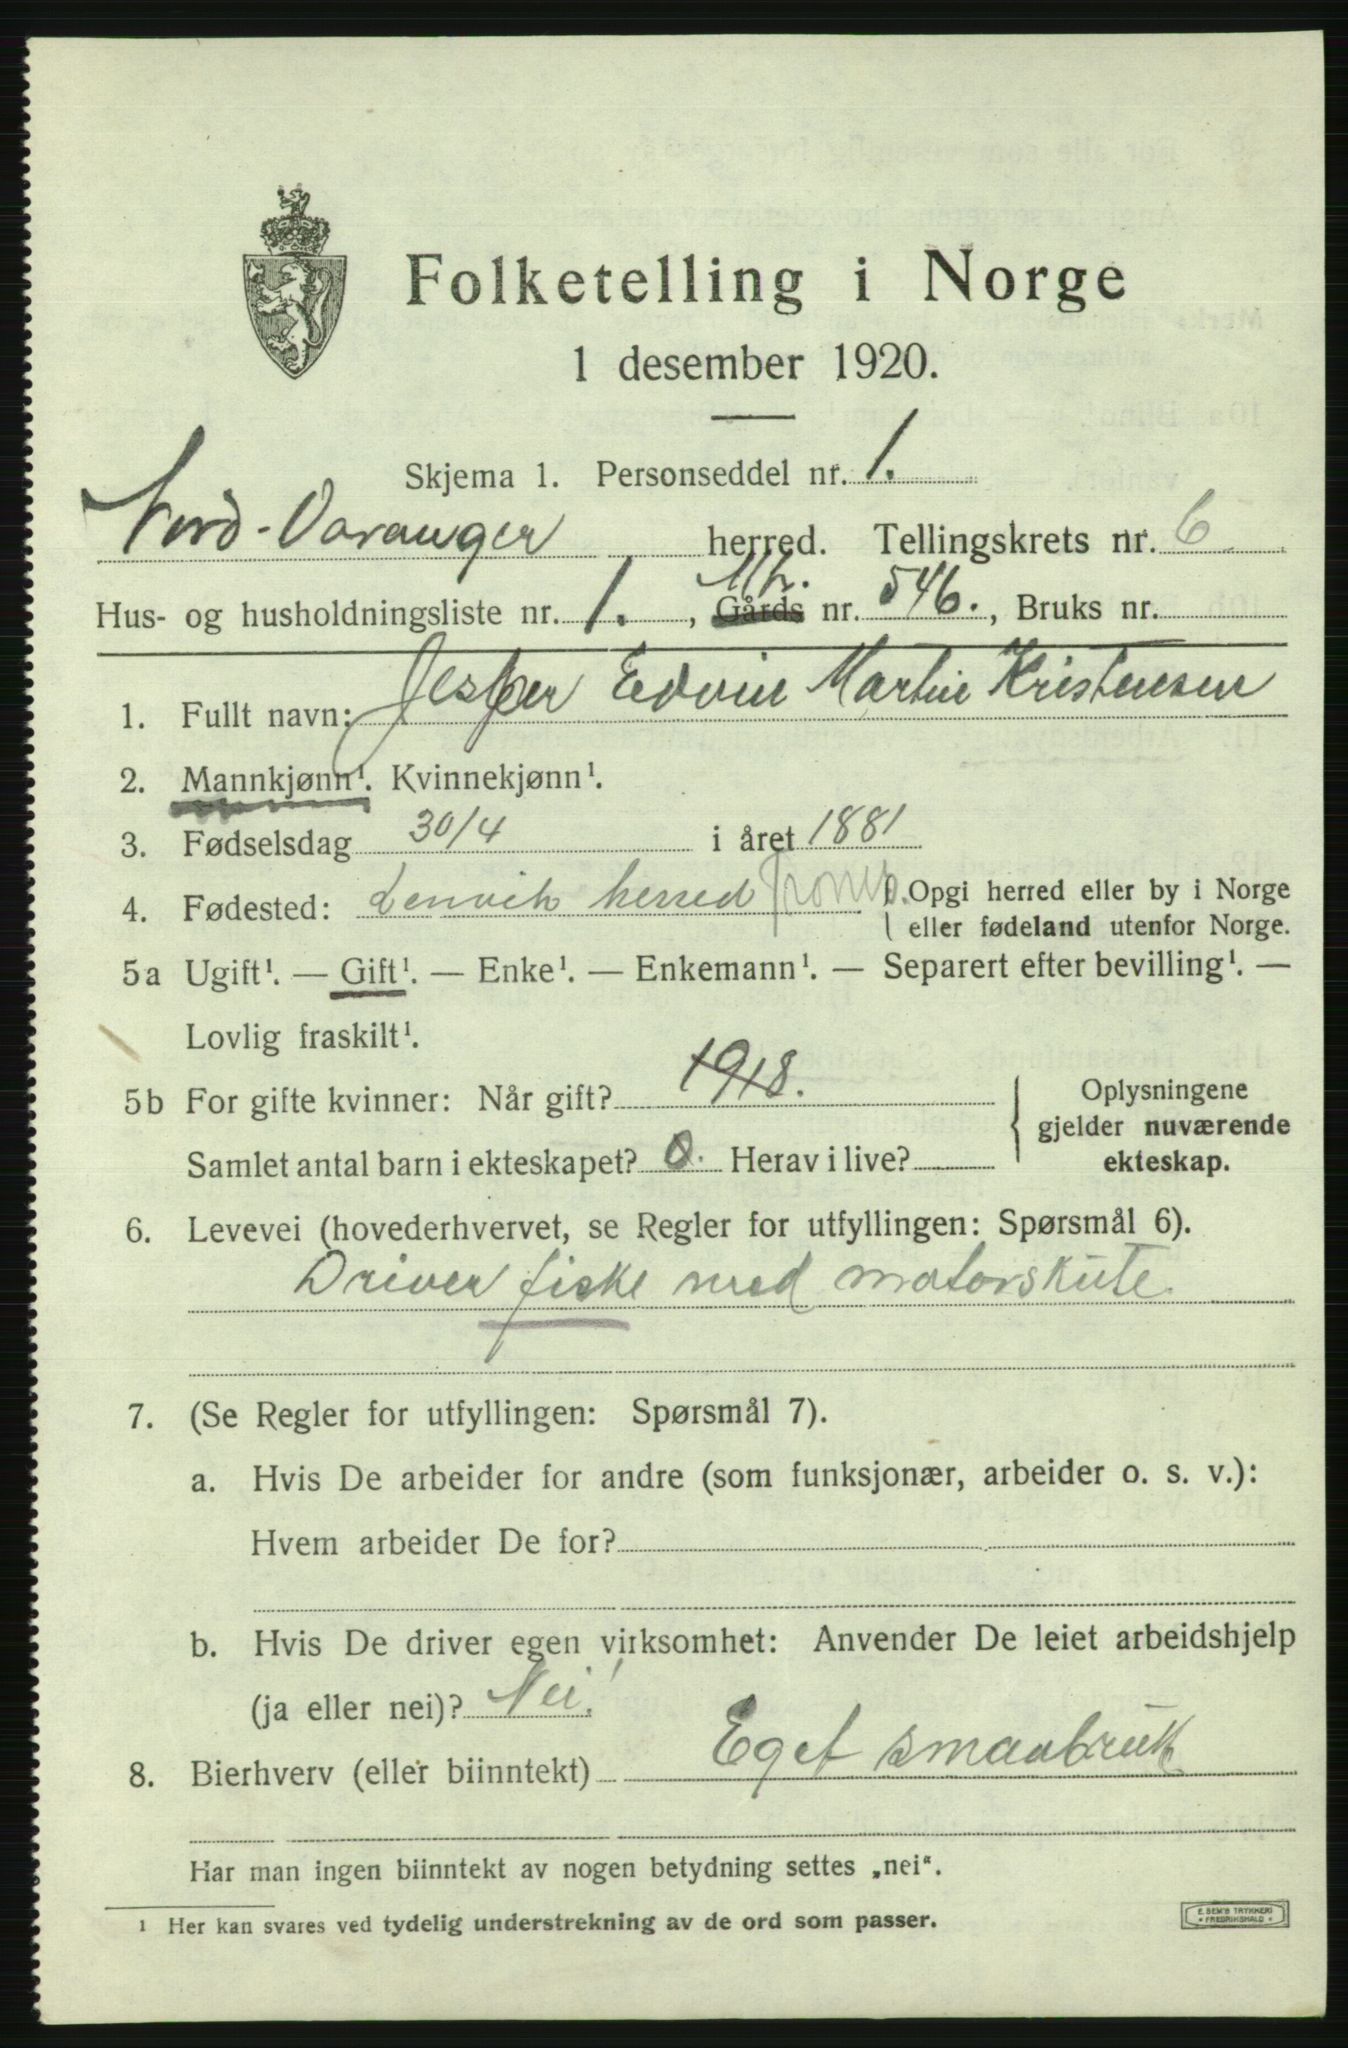 Folketelling i Norge
1 desember 1920.
Skjema 1. Personseddel nr. 1.
Nord-Varanger herred. Tellingskrets nr. 6
Hus- og husholdningsliste nr. 1., Gårds Mk. nr. 546., Bruks nr.
1. Fullt navn: Jesper Edvin Martin Kristensen
2. Mannkjønn¹. Kvinnekjønn¹.
3. Fødselsdag 30/4 i året 1881
4. Fødested: Lenvik herred Troms. Opgi herred eller by i Norge
eller fødeland utenfor Norge.
5a Ugift¹. — Gift¹. — Enke¹. — Enkemann¹. — Separert efter bevilling¹. —
Lovlig fraskilt¹.
5b For gifte kvinner: Når gift? 1918.
Samlet antal barn i ekteskapet? 0. Herav i live?
Oplysningene
gjelder nuværende
ekteskap.
6. Levevei (hovederhvervet, se Regler for utfyllingen: Spørsmål 6).
Driver fiske med motorskute
7. (Se Regler for utfyllingen: Spørsmål 7).
a. Hvis De arbeider for andre (som funksjonær, arbeider o. s. v.):
Hvem arbeider De for?
b. Hvis De driver egen virksomhet: Anvender De leiet arbeidshjelp
(ja eller nei)? Nei!
8. Bierhverv (eller biinntekt) Eget smaabruk
Har man ingen biinntekt av nogen betydning settes „nei“.
¹ Her kan svares ved tydelig understrekning av de ord som passer.
E. SEM'S TRYKKERI
• FREDRIKSHALD •